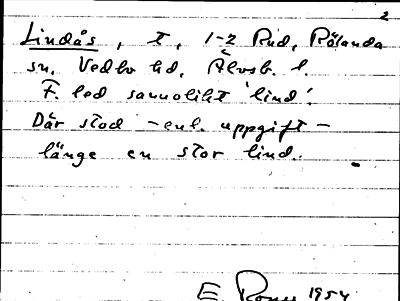 2
Lindås, t, 1-2 Rud, Rölanda
sn. Vedbo hd, Älvsb. l.
F. led sannolikt 'lind'.
Där stod - enl. uppgift -
länge en stor lind.
E. 1954